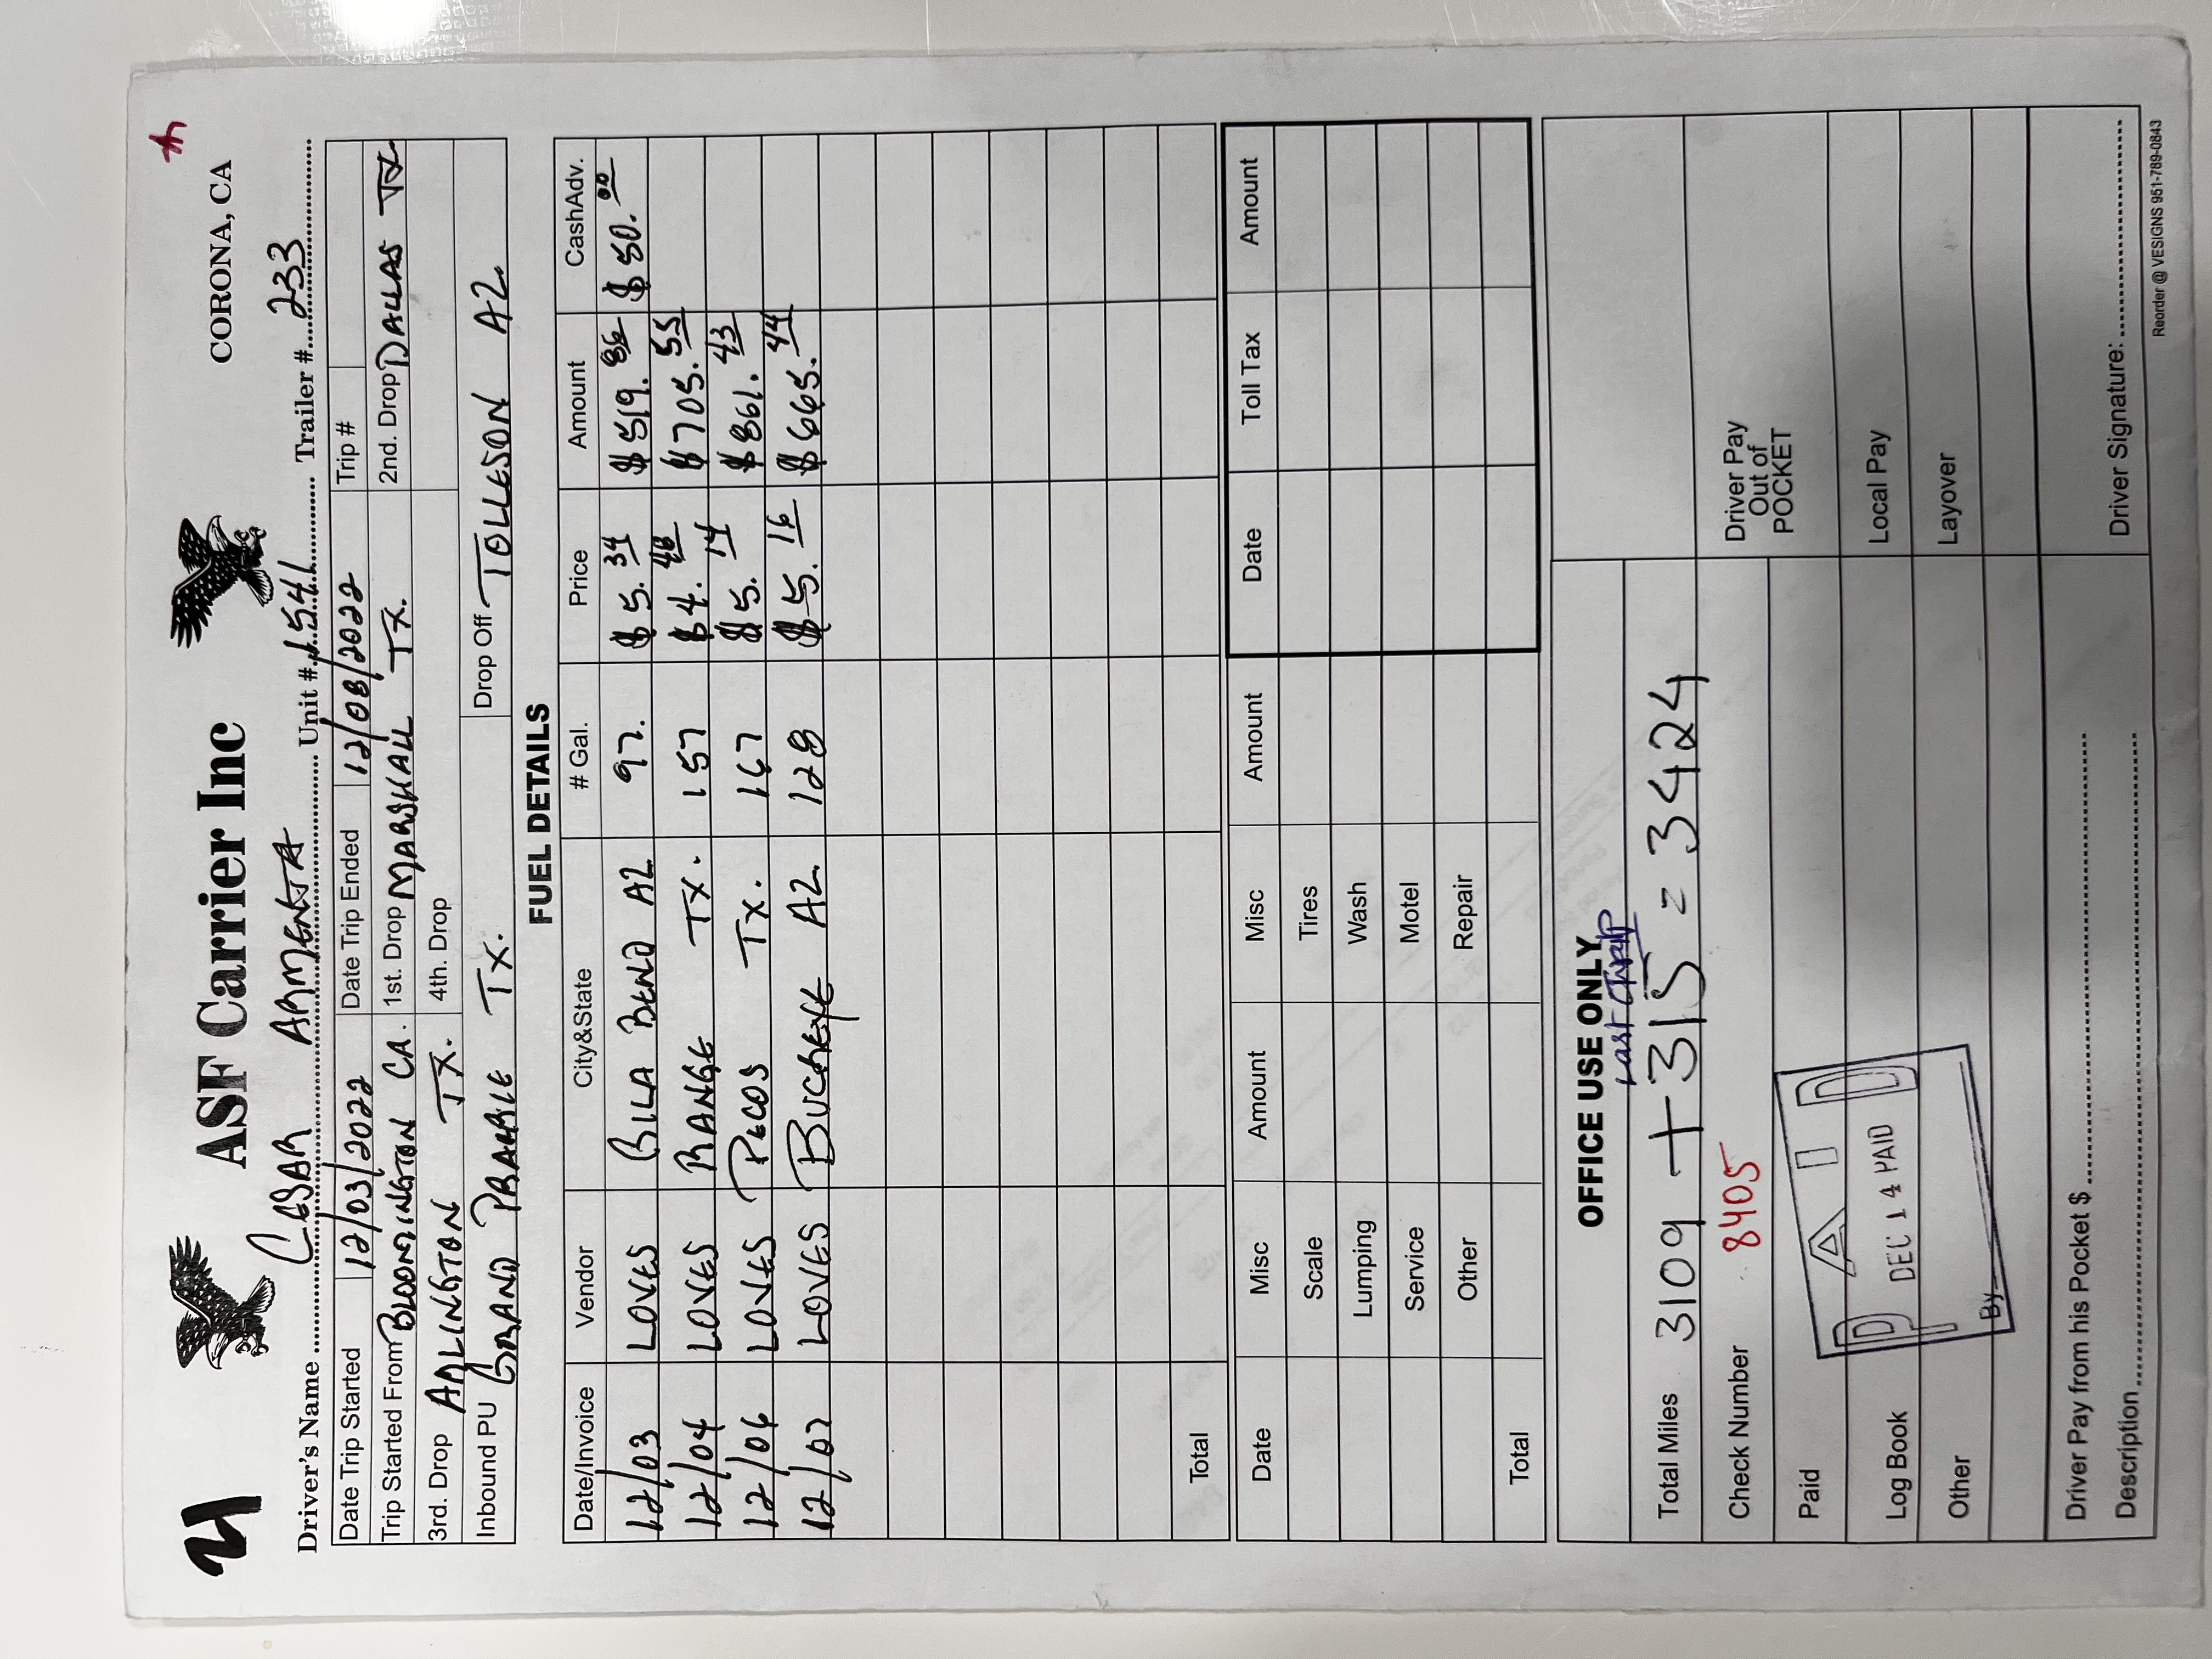 21 ASF Carrier Inc CORONA, CA
Driver's Name CESAR ARMENTA Unit # 1541 Trailer # 233
Date Trip Started 12/03/2022 Date Trip Ended 12/08/2022 Trip #
Trip Started From BLOOMINGTON CA. 1st. Drop MARSHALL TX. 2nd. Drop DALLAS TX
3rd. Drop ARLINGTON TX. 4th. Drop
Inbound PU GRAND PRARRIE TX. Drop Off TOLLESON AZ.
FUEL DETAILS
Date/Invoice Vendor City&State # Gal. Price Amount CashAdv.
12/03 LOVES GILA BEND AZ 97. $5.34 $519.86 $50.00
12/04 LOVES RANGE TX. 157 $4.48 $705.55
12/06 LOVES PECOS TX. 167 $5.14 $861.43
12/07 LOVES BUCKEYE AZ. 128 $5.16 $665.44
Total
Date Misc Amount Misc Amount Date Toll Tax Amount
Scale Tires
Lumping Wash
Service Motel
Other Repair
Total
OFFICE USE ONLY
Last Trip
Total Miles 3109 + 315 = 3424
Check Number 8405
Driver Pay
Out of
POCKET
Paid
PAID
DEC 14 PAID
By
Log Book
Local Pay
Other
Layover
Driver Pay from his Pocket $
Description
Driver Signature:
Reorder @ VESIGNS 951-789-0843